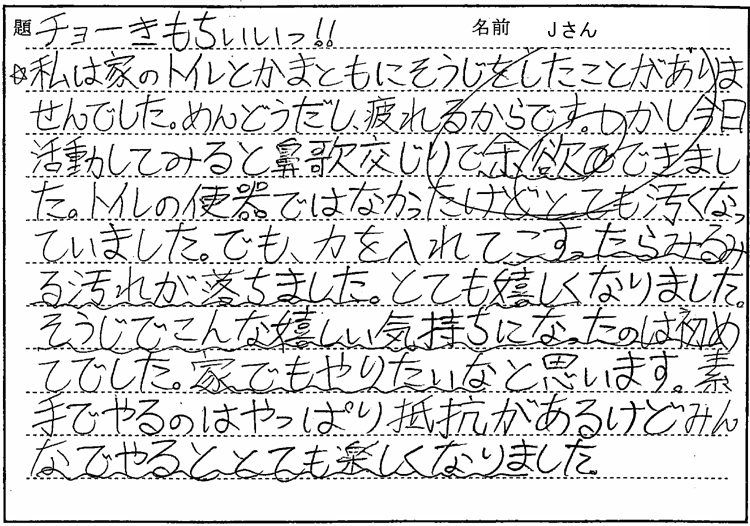 題 チョーきもちいいっ!! 名前 Jさん
☆私は家のトイレとかまともにそうじをしたことがありま
せんでした。めんどうだし、疲れるからです。しかし今日
活動してみると鼻歌交じりで余欲のできまし
た。トイレの便器ではなかったけどとても汚くなっ
ていました。でも、力を入れてこすったらみるみ
る汚れが落ちました。とても嬉しくなりました。
そうじでこんな嬉しい気持ちになったのは初め
てでした。家でもやりたいなと思います。素
手でやるのはやっぱり抵抗があるけどみん
なでやるととても楽しくなりました。